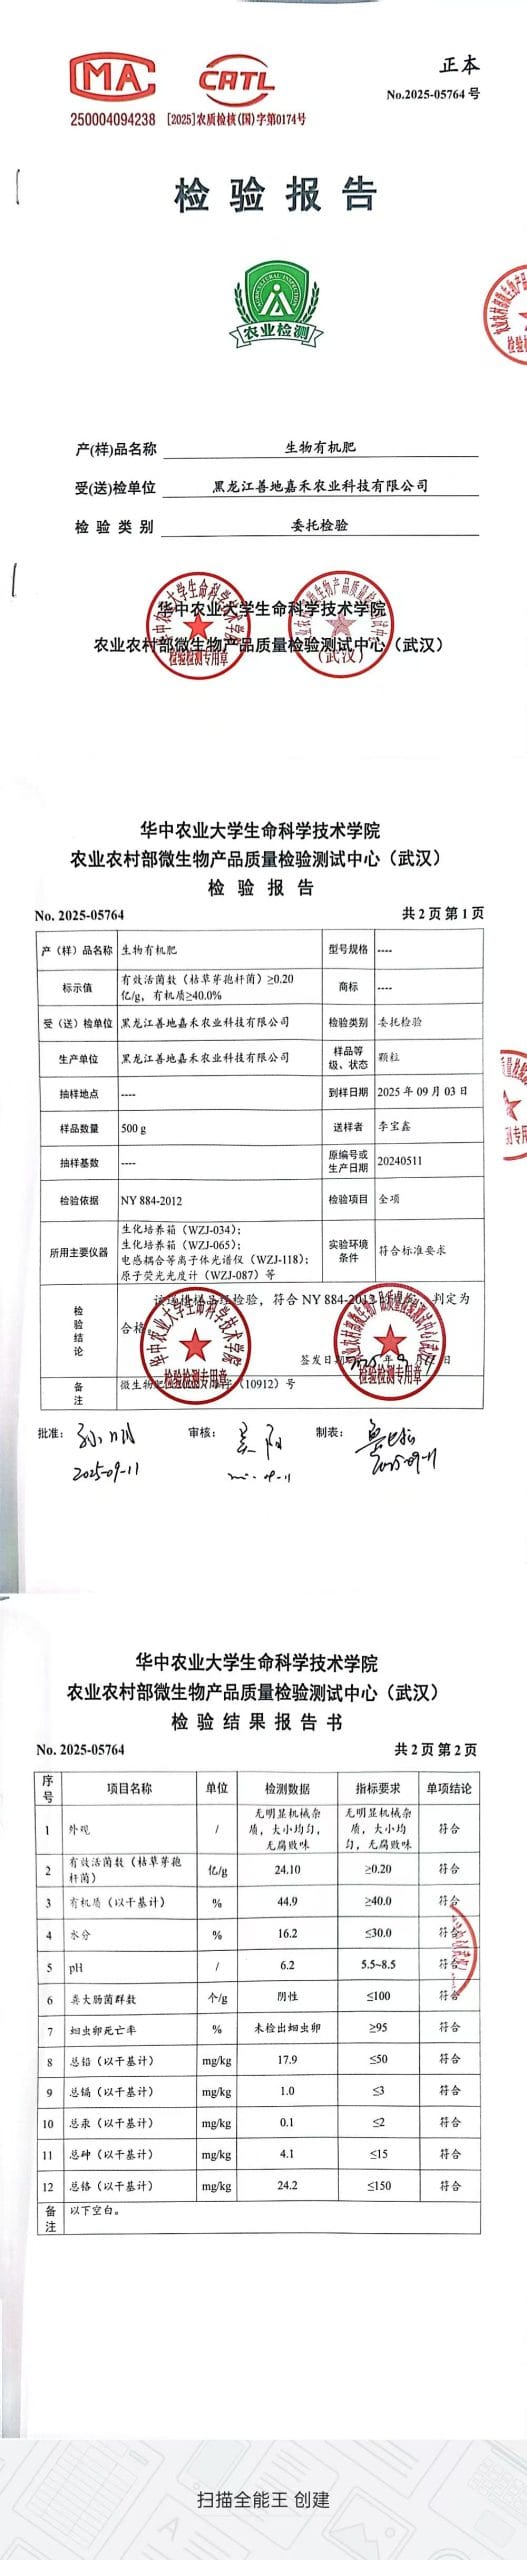 MA
CATL
正本
No.2025-05764 号
250004094238
[2025]农质检核(国)字第0174号
检验报告
AGRICULTURAL INSPECTION
农业检测
产(样)品名称 生物有机肥
受(送)检单位 黑龙江善地嘉禾农业科技有限公司
检验类别 委托检验
华中农业大学生命科学技术学院
农业农村部微生物产品质量检验测试中心（武汉）
检验检测专用章
（武汉）
华中农业大学生命科学技术学院
农业农村部微生物产品质量检验测试中心（武汉）
检验报告
No. 2025-05764 共 2 页 第 1 页
产（样）品名称 生物有机肥 型号规格 ----
标示值 有效活菌数（枯草芽孢杆菌）≥0.20
亿/g，有机质≥40.0% 商标 ----
受（送）检单位 黑龙江善地嘉禾农业科技有限公司 检验类别 委托检验
生产单位 黑龙江善地嘉禾农业科技有限公司 样品等
级、状态 颗粒
抽样地点 ---- 到样日期 2025 年 09 月 03 日
样品数量 500 g 送样者 李宝鑫
抽样基数 ---- 原编号或
生产日期 20240511
检验依据 NY 884-2012 检验项目 全项
所用主要仪器 生化培养箱（WZJ-034）；
生化培养箱（WZJ-065）；
电感耦合等离子体光谱仪（WZJ-118）；
原子荧光光度计（WZJ-087）等
实验环境
条件 符合标准要求
检验结论
经检验，符合 NY 884-2012 判定为
合格。
签发日期
检验检测专用章
检验检测专用章
备注 微生物肥 （10912）号
批准： 审核： 制表：
2025-09-11
2025-09-11
华中农业大学生命科学技术学院
农业农村部微生物产品质量检验测试中心（武汉）
检验结果报告书
No. 2025-05764 共 2 页 第 2 页
序号 项目名称 单位 检测数据 指标要求 单项结论
1 外观 / 无明显机械杂质，大小均匀，无腐败味 无明显机械杂质，大小均匀，无腐败味 符合
2 有效活菌数（枯草芽孢杆菌） 亿/g 24.10 ≥0.20 符合
3 有机质（以干基计） % 44.9 ≥40.0 符合
4 水分 % 16.2 ≤30.0 符合
5 pH / 6.2 5.5~8.5 符合
6 粪大肠菌群数 个/g 阴性 ≤100 符合
7 蛔虫卵死亡率 % 未检出蛔虫卵 ≥95 符合
8 总铅（以干基计） mg/kg 17.9 ≤50 符合
9 总镉（以干基计） mg/kg 1.0 ≤3 符合
10 总汞（以干基计） mg/kg 0.1 ≤2 符合
11 总砷（以干基计） mg/kg 4.1 ≤15 符合
12 总铬（以干基计） mg/kg 24.2 ≤150 符合
备注 以下空白。
扫描全能王 创建